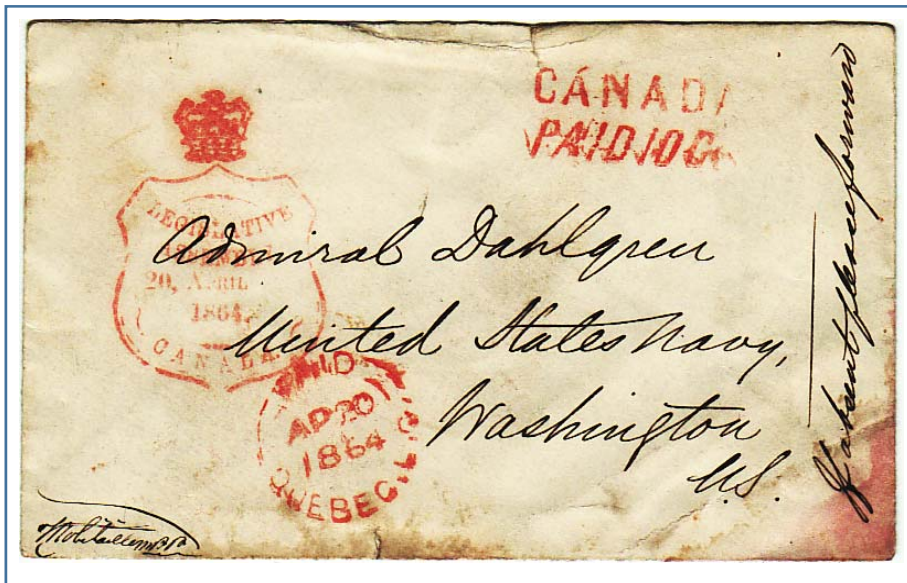 CANADA
PAID 10C
LEGISLATIVE
ASSEMBLY
20, APRIL
1864
CANADA
Admiral Dahlgren
United States Navy,
Washington
U.S.
PAID
AP 20
1864
QUEBEC
If absent please forward